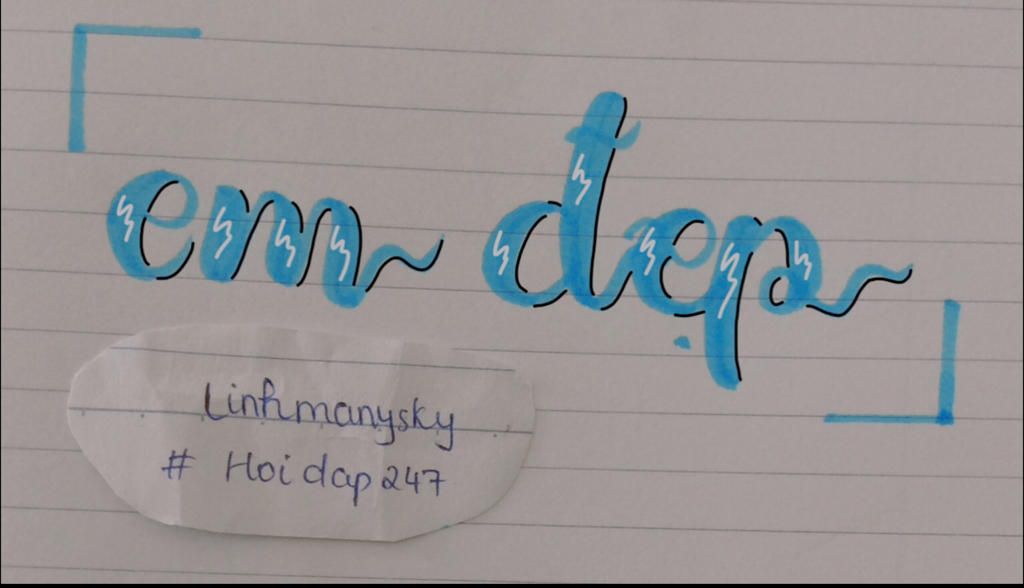 em đẹp
Linhmanysky
# Hoidap247